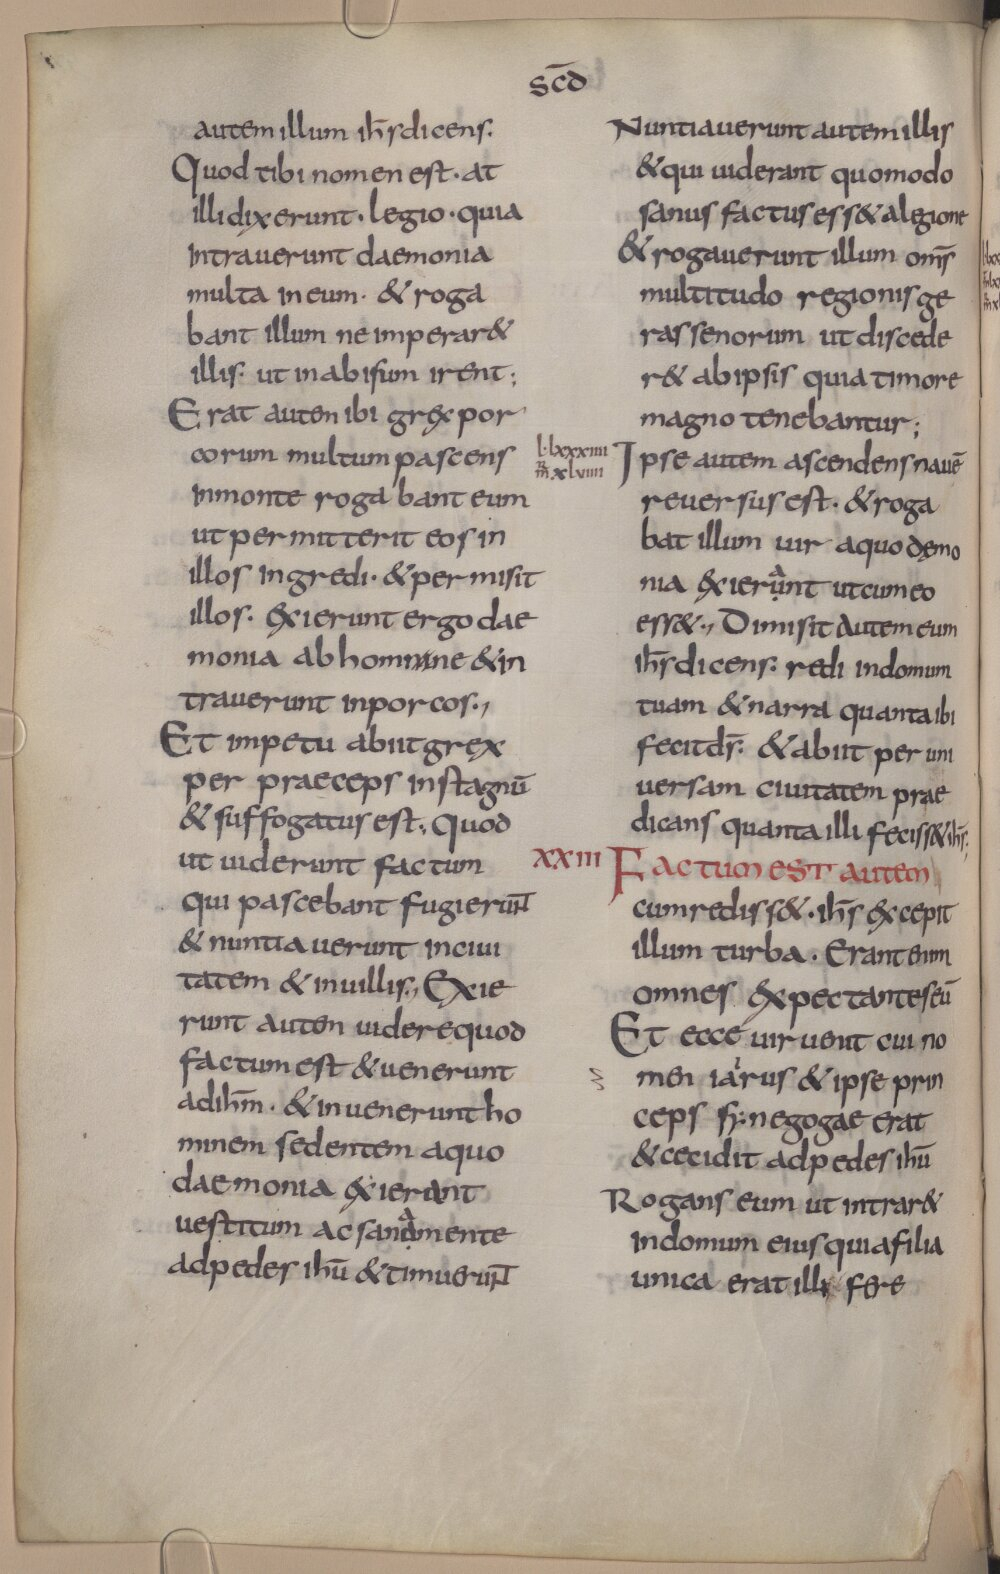 scd̄
autem illum ih̄s dicens:
Quod tibi nomen est· at
illi dixerunt· legio· quia
intrauerunt daemonia
multa in eum· & roga
bant illum ne imperar&
illis· ut in abisum irent;
Erat auten ibi grex por
corum multum pascens
in monte roga bant eum
ut permitterit eos in
illos ingredi· & permisit
illos· exierunt ergo dae
monia ab homine & in
trauerunt in porcos·,
Et impetu abiit grex
per praeceps in stagnū
& suffogatus est; Quod
ut uiderunt factum
qui pascebant fugierunt
& nuntiauerunt in ciui
tatem & in uillis·, Exie
runt auten uidere quod
factum est & uenerunt
ad ih̄m· & inuenerunt ho
minem sedentem a quo
daemonia exierant
uestitum ac sana mente
ad pedes ihū & timuerunt
Nuntiauerunt autem illis
& qui uiderant quomodo
sanus factus ess& a legione
& rogauerunt illum om̄s
multitudo regionis ge
rassenorum ut discede
r& ab ipsis quia timore
magno tenebantur;
l·lxxxiiii
m̄r xlviiii
Ipse autem ascendens nauē
reuersus est· & roga
bat illum uir a quo demo
nia exierant ut cum eo
ess&·, Dimisit autem eum
ih̄s dicens: redi in domum
tuam & narra quanta ibi
fecit d̄s: & abiit per uni
uersam ciuitatem prae
dicans quanta illi feciss& ih̄s;
xxiii Factum est autem
cum rediss&· ih̄s excepit
illum turba· Erant enim
omnes expectantes eū
Et ecce uir uenit cui no
men iairus & ipse prin
ceps synegogae erat
& cecidit ad pedes ihū
Rogans eum ut intrar&
in domum eius quia filia
unica erat illi fere